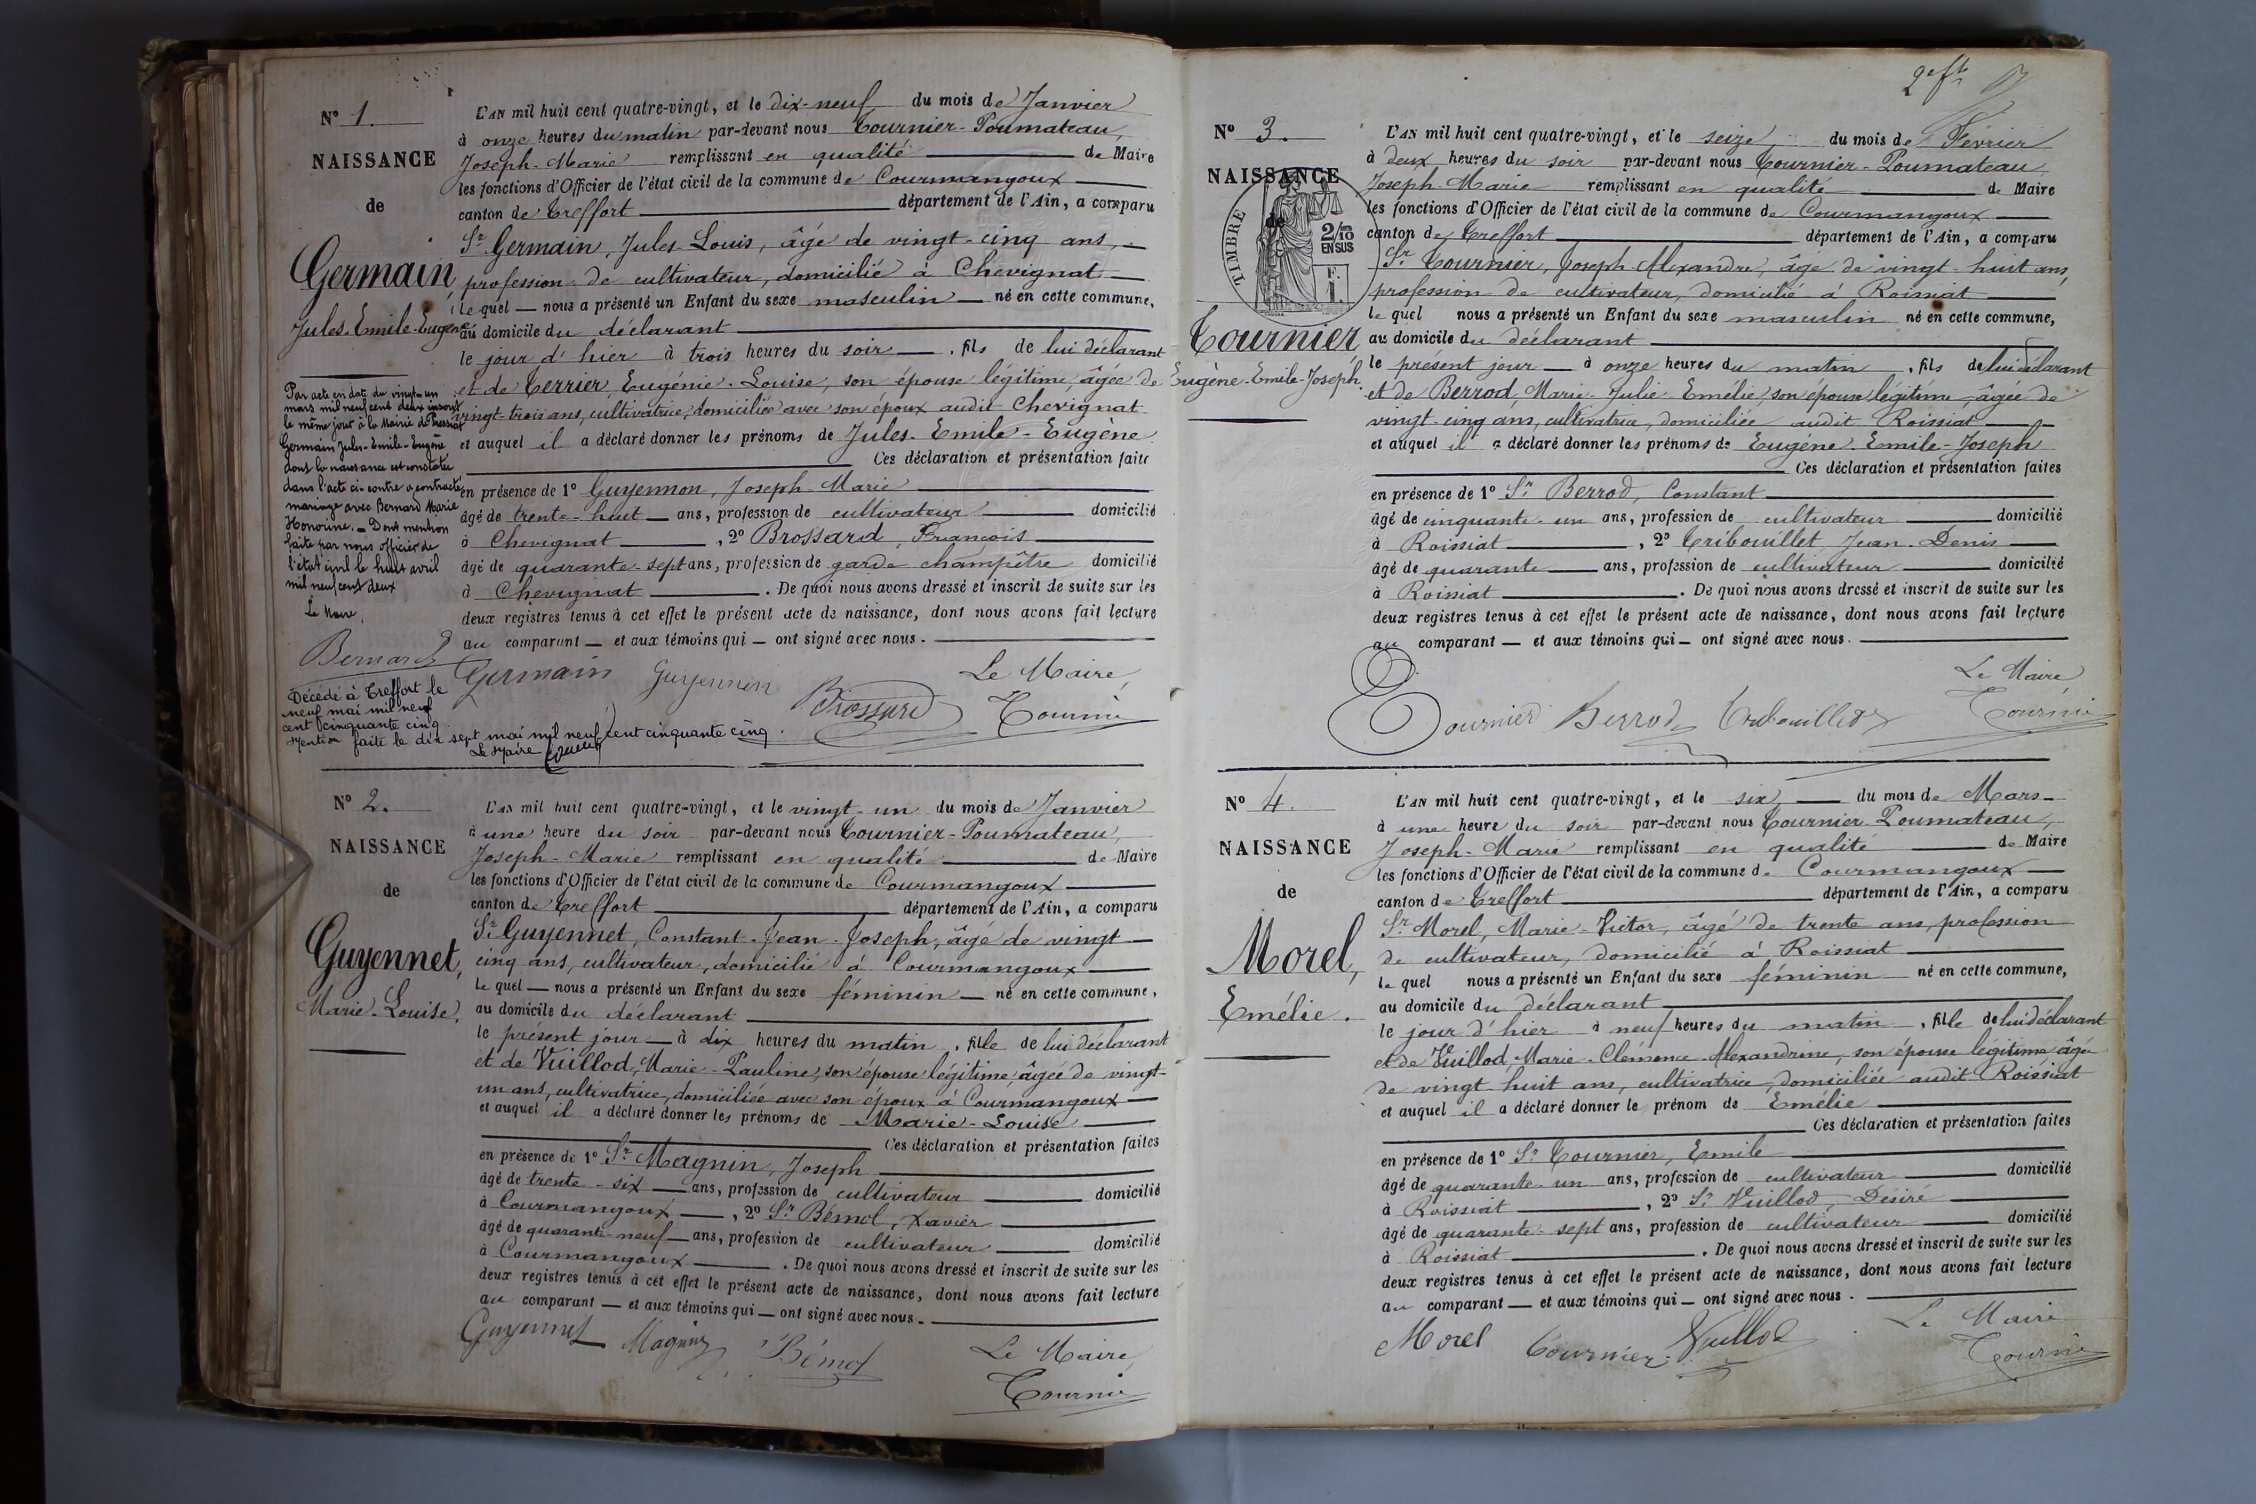 N° 1.
NAISSANCE
de
Germain
Jules-Emile-Eugène
Par acte en date du vingt-un
mars mil neuf cent deux inscrit
le même jour à la Mairie de Pressiat
Germain Jules-Emile-Eugène
dont la naissance est constatée
dans l'acte ci-contre a contracté
mariage avec Bernard Marie
Honorine. - Dont mention
faite par nous officier de
l'état civil le huit avril
mil neuf cent deux
Le Maire,
Bernard
Décédé à Treffort le
neuf mai mil neuf
cent cinquante cinq
Mention faite le dix sept mai mil neuf cent cinquante cinq.
Le Maire
L'AN mil huit cent quatre-vingt, et le dix-neuf du mois de Janvier
à onze heures du matin par-devant nous Tournier-Poumateau,
Joseph-Marie remplissant en qualité de Maire
les fonctions d'Officier de l'état civil de la commune de Courmangoux
canton de Treffort département de l'Ain, a comparu
Sr Germain, Jules-Louis, âgé de vingt-cinq ans,
profession de cultivateur, domicilié à Chevignat
le quel nous a présenté un Enfant du sexe masculin né en cette commune,
au domicile du déclarant
le jour d'hier à trois heures du soir, fils de lui déclarant
et de Terrier, Eugénie-Louise, son épouse légitime, âgée de
vingt-trois ans, cultivatrice, domiciliée avec son époux audit Chevignat
et auquel il a déclaré donner les prénoms de Jules-Emile-Eugène
Ces déclaration et présentation faite
en présence de 1° Guyennon, Joseph-Marie
âgé de trente-huit ans, profession de cultivateur domicilié
à Chevignat, 2° Brossard, François
âgé de quarante-sept ans, profession de garde champêtre domicilié
à Chevignat. De quoi nous avons dressé et inscrit de suite sur les
deux registres tenus à cet effet le présent acte de naissance, dont nous avons fait lecture
au comparant et aux témoins qui ont signé avec nous.
Le Maire,
Germain Guyennon Brossard Tournier
N° 2.
NAISSANCE
de
Guyennet,
Marie-Louise.
L'AN mil huit cent quatre-vingt, et le vingt-un du mois de Janvier
à une heure du soir par-devant nous Tournier-Poumateau,
Joseph-Marie remplissant en qualité de Maire
les fonctions d'Officier de l'état civil de la commune de Courmangoux
canton de Treffort département de l'Ain, a comparu
Sr Guyennet, Constant-Jean-Joseph, âgé de vingt
cinq ans, cultivateur, domicilié à Courmangoux
le quel nous a présenté un Enfant du sexe féminin né en cette commune,
au domicile du déclarant
le présent jour à dix heures du matin, fille de lui déclarant
et de Vuillod, Marie-Pauline, son épouse légitime, âgée de vingt-
un ans, cultivatrice, domiciliée avec son époux à Courmangoux
et auquel il a déclaré donner les prénoms de Marie-Louise
Ces déclaration et présentation faites
en présence de 1° Sr Magnin, Joseph
âgé de trente-six ans, profession de cultivateur domicilié
à Courmangoux, 2° Sr Bémol, Xavier
âgé de quarante-neuf ans, profession de cultivateur domicilié
à Courmangoux. De quoi nous avons dressé et inscrit de suite sur les
deux registres tenus à cet effet le présent acte de naissance, dont nous avons fait lecture
au comparant et aux témoins qui ont signé avec nous.
Guyennet Magnin Bémol Le Maire,
Tournier
2e ft
N° 3.
NAISSANCE
de
TIMBRE
2/10 EN SUS
Tournier
Eugène-Emile-Joseph.
L'AN mil huit cent quatre-vingt, et le seize du mois de Février
à deux heures du soir par-devant nous Tournier-Poumateau,
Joseph-Marie remplissant en qualité de Maire
les fonctions d'Officier de l'état civil de la commune de Courmangoux
canton de Treffort département de l'Ain, a comparu
Sr Tournier, Joseph-Alexandre, âgé de vingt-huit ans,
profession de cultivateur, domicilié à Roissiat
le quel nous a présenté un Enfant du sexe masculin né en cette commune,
au domicile du déclarant
le présent jour à onze heures du matin, fils de lui déclarant
et de Berrod, Marie-Julie-Emélie, son épouse légitime, âgée de
vingt-cinq ans, cultivatrice, domiciliée audit Roissiat
et auquel il a déclaré donner les prénoms de Eugène-Emile-Joseph
Ces déclaration et présentation faites
en présence de 1° Sr Berrod, Constant
âgé de cinquante-un ans, profession de cultivateur domicilié
à Roissiat, 2° Tribouillet, Jean-Denis
âgé de quarante ans, profession de cultivateur domicilié
à Roissiat. De quoi nous avons dressé et inscrit de suite sur les
deux registres tenus à cet effet le présent acte de naissance, dont nous avons fait lecture
au comparant et aux témoins qui ont signé avec nous.
Le Maire,
Tournier Berrod Tribouillet Tournier
N° 4.
NAISSANCE
de
Morel,
Emélie.
L'AN mil huit cent quatre-vingt, et le six du mois de Mars
à une heure du soir par-devant nous Tournier-Poumateau,
Joseph-Marie remplissant en qualité de Maire
les fonctions d'Officier de l'état civil de la commune de Courmangoux
canton de Treffort département de l'Ain, a comparu
Sr Morel, Marie-Victor, âgé de trente ans, profession
de cultivateur, domicilié à Roissiat
le quel nous a présenté un Enfant du sexe féminin né en cette commune,
au domicile du déclarant
le jour d'hier à neuf heures du matin, fille de lui déclarant
et de Vuillod, Marie-Clémence-Alexandrine, son épouse légitime âgée
de vingt-huit ans, cultivatrice, domiciliée audit Roissiat
et auquel il a déclaré donner le prénom de Emélie
Ces déclaration et présentation faites
en présence de 1° Sr Tournier, Emile
âgé de quarante-un ans, profession de cultivateur domicilié
à Roissiat, 2° Sr Vuillod, Désiré
âgé de quarante-sept ans, profession de cultivateur domicilié
à Roissiat. De quoi nous avons dressé et inscrit de suite sur les
deux registres tenus à cet effet le présent acte de naissance, dont nous avons fait lecture
au comparant et aux témoins qui ont signé avec nous.
Morel Tournier Vuillod Le Maire
Tournier